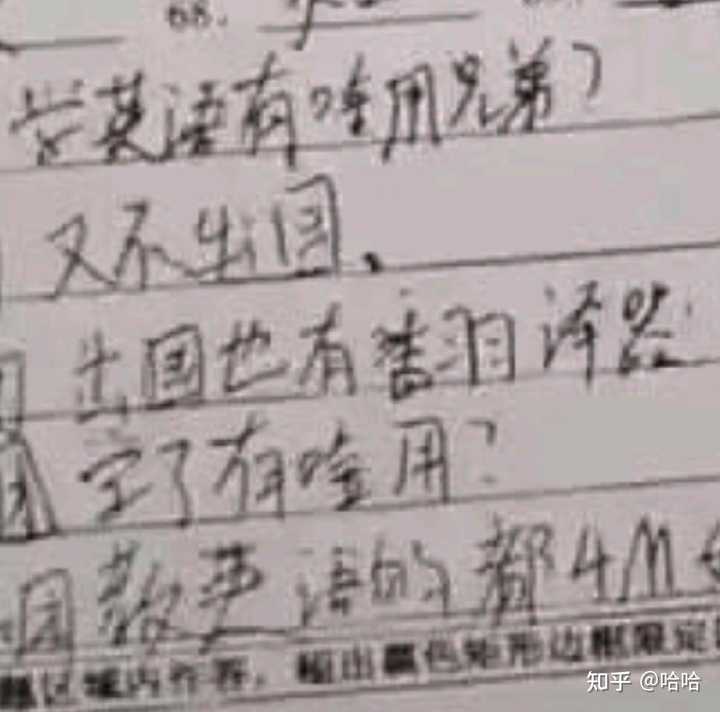 68.
学英语有啥用兄弟?
又不出国、
出国也有翻译器
学了有啥用?
国教英语的都4M
题区域内作答,超出黑色矩形边框限定
知乎 @哈哈